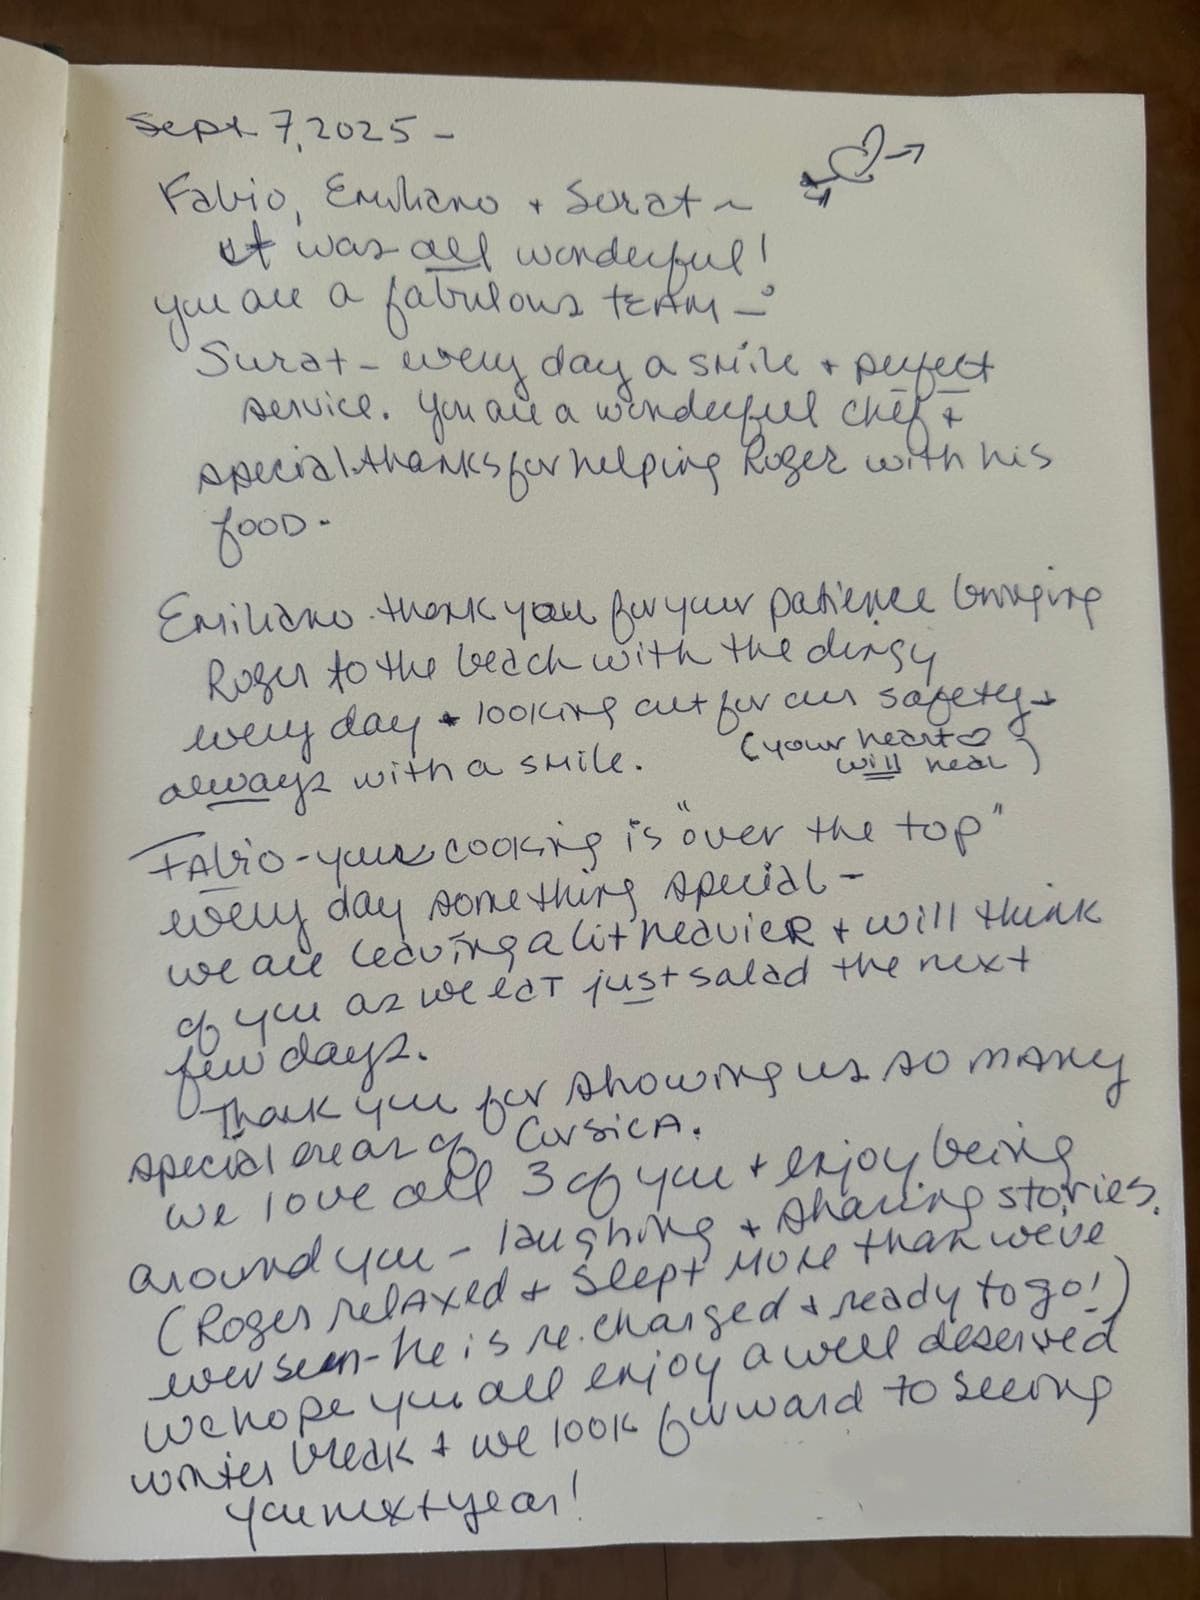 Sept 7, 2025 -
Fabio, Emiliano + Surat ~
It was all wonderful!
you are a fabulous TEAM -
Surat - every day a smile + perfect
service. You are a wonderful chef +
special thanks for helping Roger with his
food.
Emiliano. thank you for your patience bringing
Roger to the beach with the dingy
every day + looking out for our safety +
always with a smile.
(your heart ♡
will heal)
FABIO - your cooking is "over the top"
every day something special -
we are leaving a bit heavier + will think
of you as we eat just salad the next
few days.
Thank you for showing us so many
special areas of Corsica.
we love all 3 of you + enjoy being
around you - laughing + sharing stories.
(Roger relaxed + slept more than we've
ever seen - he is re.charged + ready to go!)
we hope you all enjoy a well deserved
winter break + we look forward to seeing
you next year!